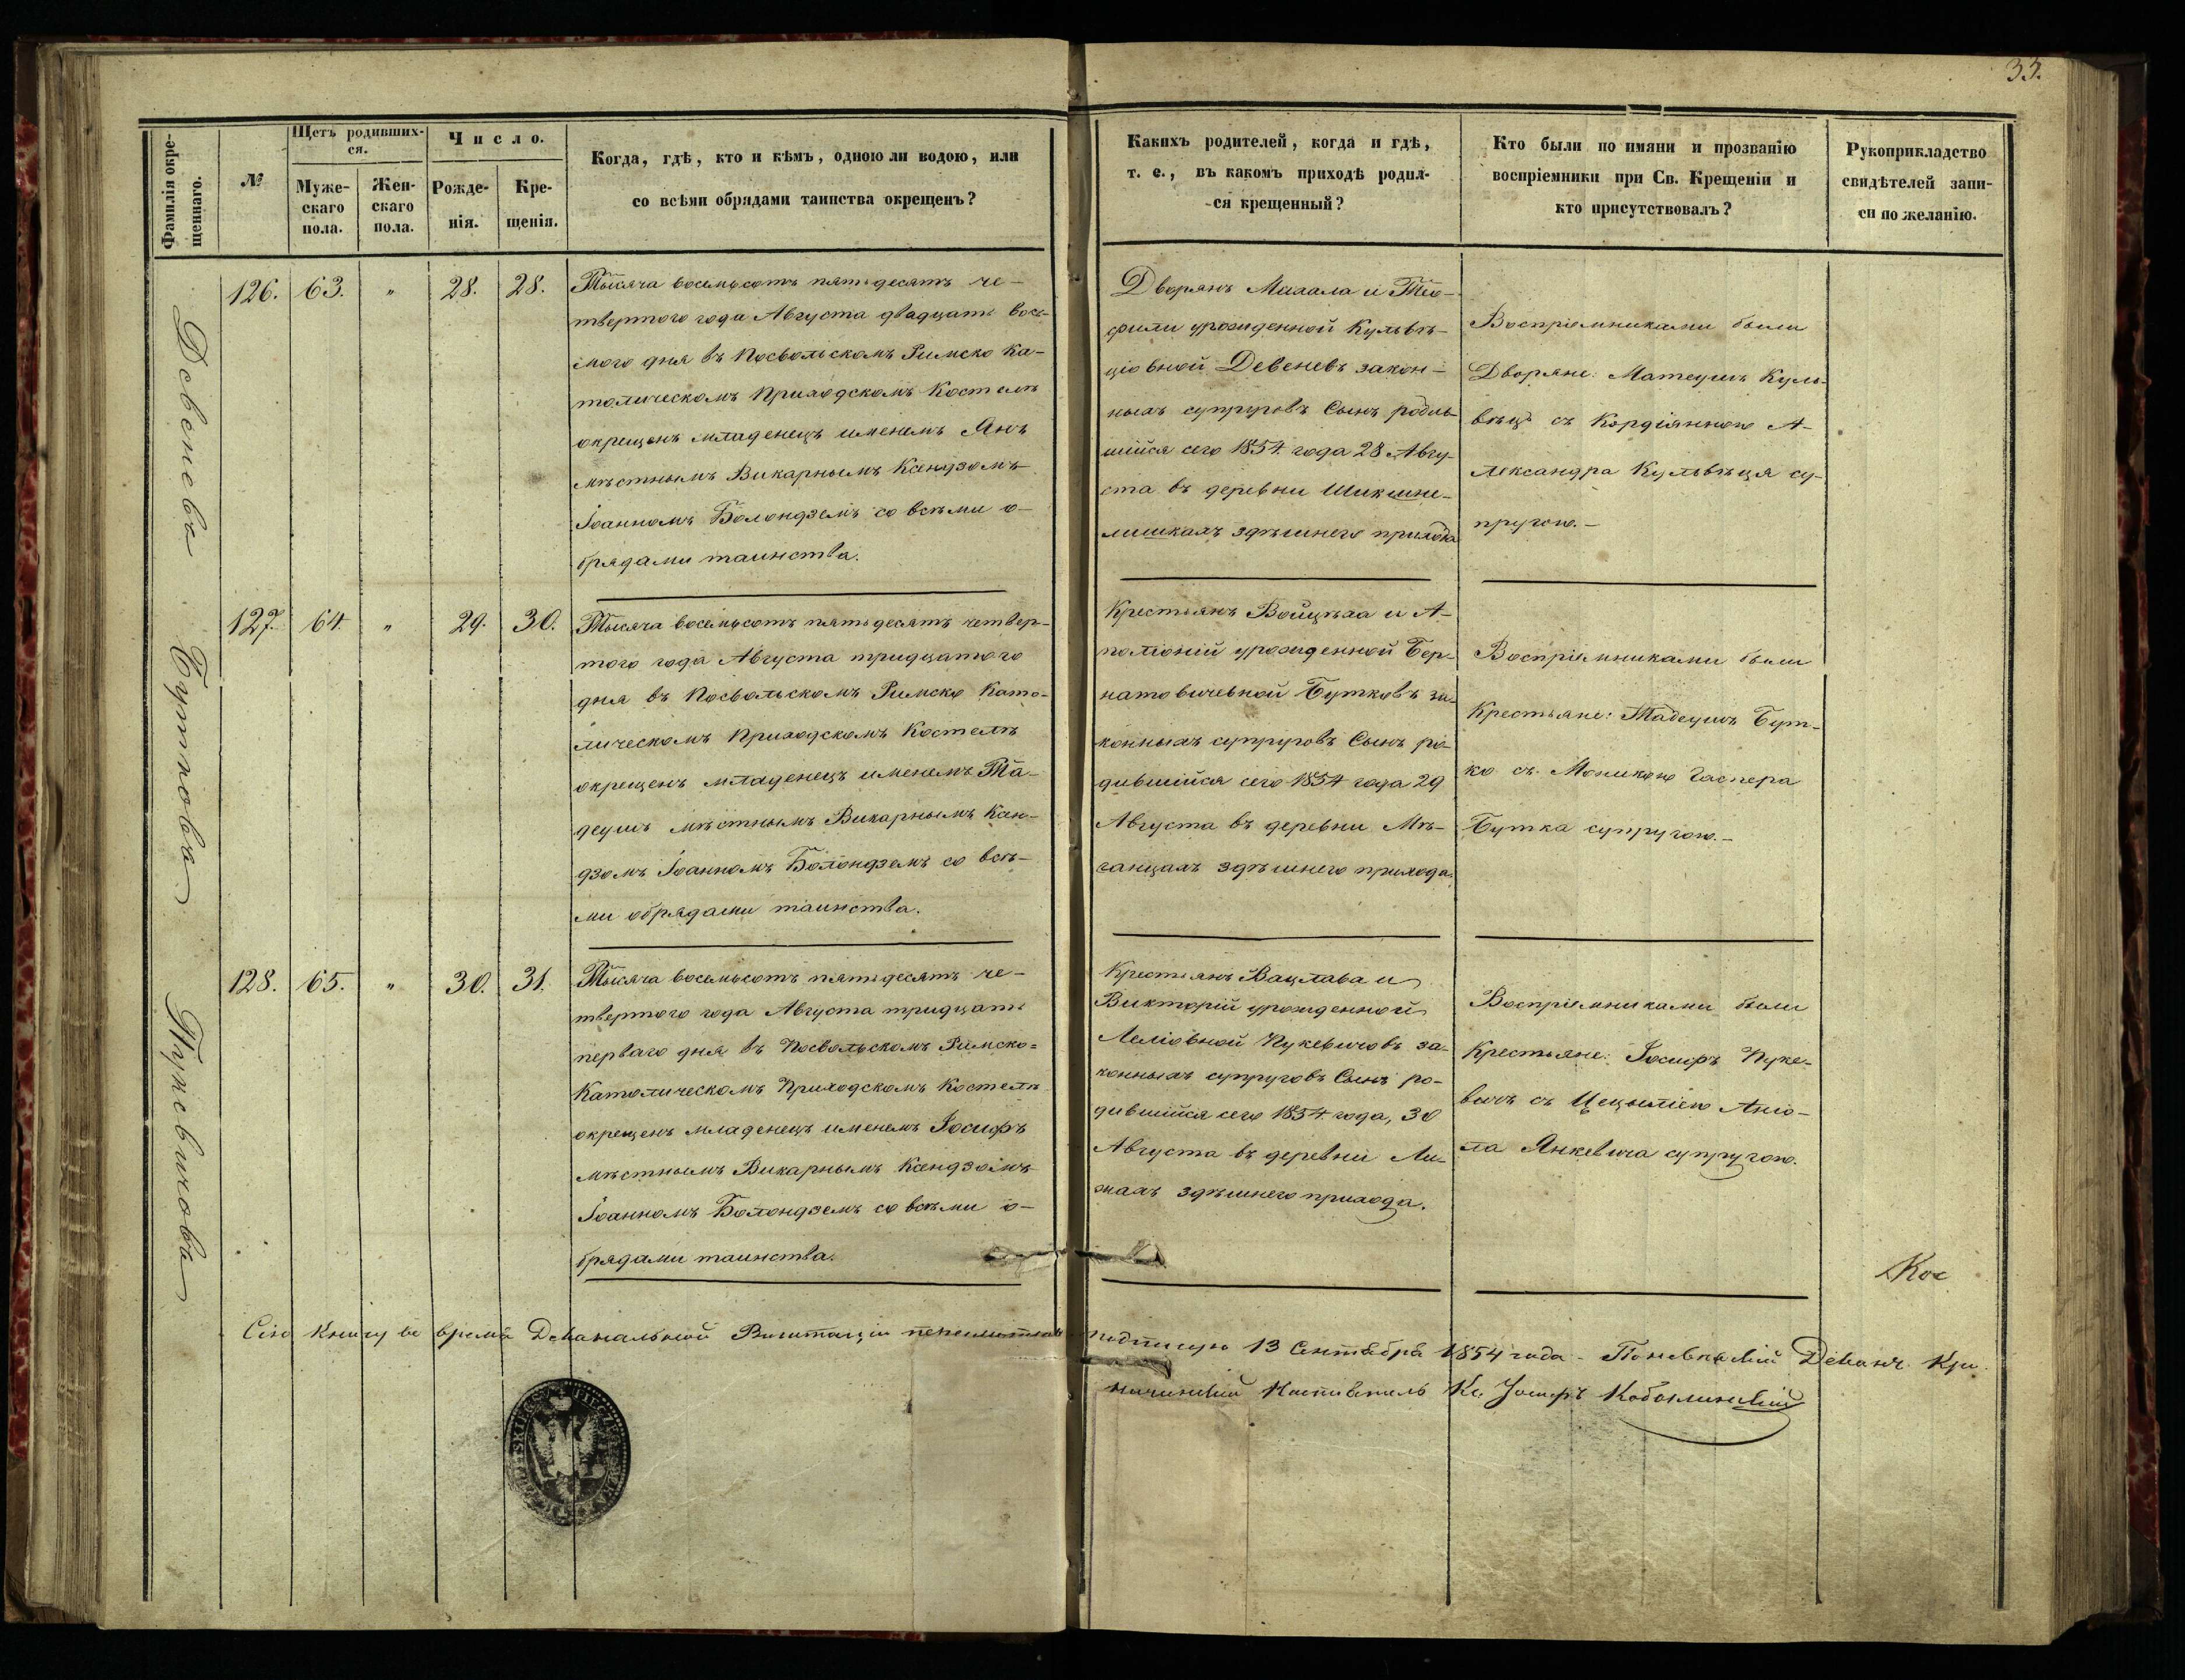 33.
Фамилія окре-
щеннаго.
№
Щетъ родивших-
ся.
Муже-
скаго
пола.
Жен-
скаго
пола.
Число.
Рожде-
нія.
Кре-
щенія.
Когда, гдѣ, кто и кѣмъ, одною ли водою, или
со всѣми обрядами таинства окрещенъ?
Какихъ родителей, когда и гдѣ,
т. е., въ какомъ приходѣ родил-
-ся крещенный?
Кто были по имяни и прозванію
воспріемники при Св. Крещеніи и
кто присутствовалъ?
Рукоприкладство
свидѣтелей запи-
си по желанію.
Девеневъ
126. 63. " 28. 28.
Тысяча восемьсотъ пятьдесятъ че-
твертого года Августа двадцать вось-
мого дня въ Посвольскомъ Римско Ка-
толическомъ Приходскомъ Костелѣ
окрещенъ младенецъ именемъ Янъ
мѣстнымъ Викарнымъ Ксендзомъ
Іоанномъ Болондземъ со всѣми о-
брядами таинства.
Дворянъ Михала и Тео-
фили урожденной Кульвѣ-
ціовной Девеневъ закон-
ныхъ супруговъ Сынъ родив-
шійся сего 1854 года 28 Авгу-
ста въ деревни Шикшне-
лишкахъ здѣшнего прихода
Воспріемниками были
Дворяне: Матеушъ Куль-
вѣцъ съ Кордіянною А-
лександра Кульвѣця су-
пругою.-
Бутковъ
127. 64. " 29. 30.
Тысяча восемьсотъ пятьдесятъ четвер-
того года Августа тридцатого
дня въ Посвольскомъ Римско Като-
лическомъ Приходскомъ Костелѣ
окрещенъ младенецъ именемъ Та-
деушъ мѣстнымъ Викарнымъ Ксен-
дзомъ Іоанномъ Болондземъ со всѣ-
ми обрядами таинства.
Крестьянъ Войцѣха и А-
полоніи урожденной Бер-
натовичевной Бутковъ за-
конныхъ супруговъ Сынъ ро-
дившійся сего 1854 года 29
Августа въ деревни Мѣ-
ганцахъ здѣшнего прихода.
Воспріемниками были
Крестьяне: Тадеушъ Бут-
ко съ Моникою Гаспера
Бутка супругою.-
Пукевичовъ
128. 65. " 30. 31.
Тысяча восемьсотъ пятьдесятъ че-
твертого года Августа тридцать
перваго дня въ Посвольскомъ Римско=
Католическомъ Приходскомъ Костелѣ
окрещенъ младенецъ именемъ Іосифъ
мѣстнымъ Викарнымъ Ксендзомъ
Іоанномъ Болондземъ со всѣми о-
брядами таинства.
Крестьянъ Вацлава и
Викторіи урожденной
Леліовной Пукевичовъ за-
конныхъ супруговъ Сынъ ро-
дившійся сего 1854 года, 30
Августа въ деревни Ли-
жахъ здѣшнего прихода.
Воспріемниками были
Крестьяне: Іосифъ Пуке-
вичъ съ Цецыліею Аніо-
ла Янкевича супругою.
Кос
Сію Книгу во время Деканальной Визитаціи подписую 13 Сентября 1854 года - Поневѣжскій Деканъ Кри-
Настоятель Кс. Іосифъ